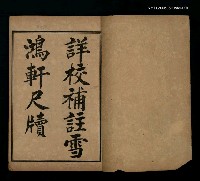 詳校補註雪
鴻軒尺牘